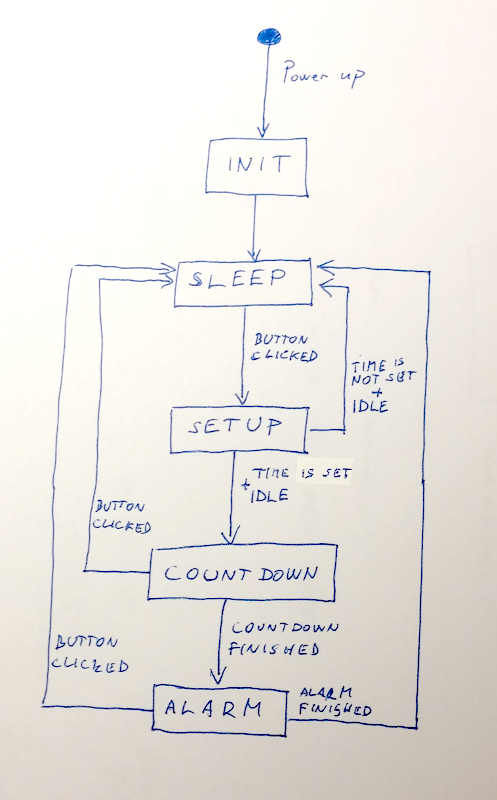 Power up
INIT
SLEEP
BUTTON
CLICKED
TIME IS
NOT SET
+
IDLE
SETUP
+ TIME IS SET
IDLE
BUTTON
CLICKED
COUNTDOWN
COUNTDOWN
FINISHED
BUTTON
CLICKED
ALARM
ALARM
FINISHED